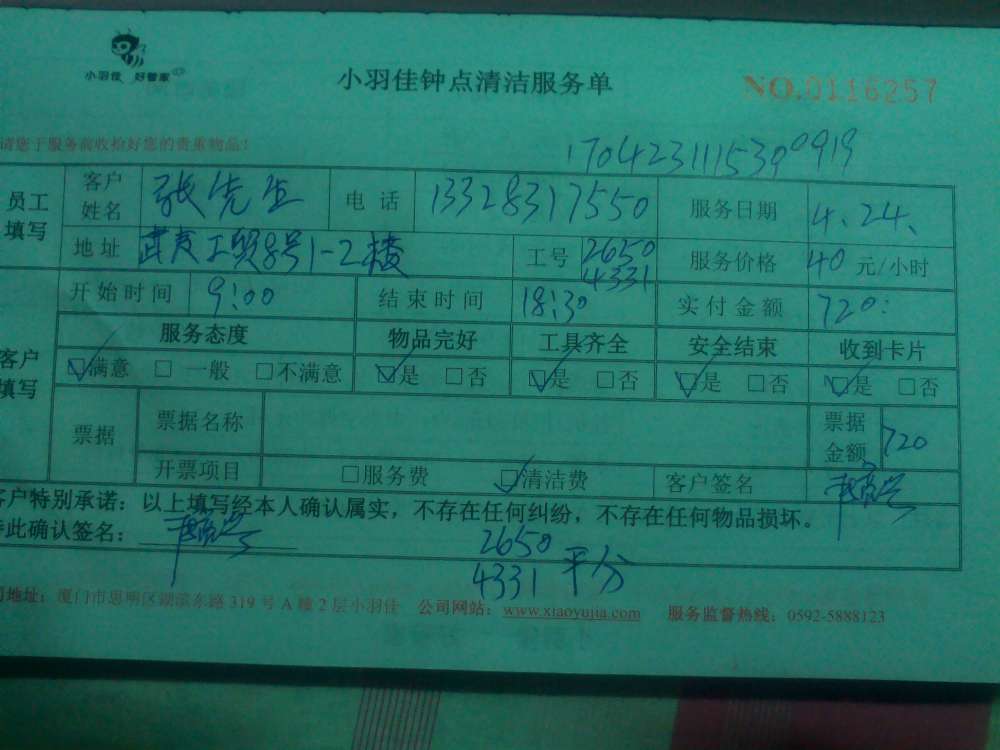 小羽佳 好管家
小羽佳钟点清洁服务单
NO.0116257
请您于服务前收拾好您的贵重物品!
1704231115390919
员工填写
客户姓名 张先生 电话 13328317550 服务日期 4.24.
地址 工贸8号1-2楼 工号 2650 4331 服务价格 40 元/小时
开始时间 9:00 结束时间 18:30 实付金额 720
客户填写
服务态度 物品完好 工具齐全 安全结束 收到卡片
☑满意 □一般 □不满意 ☑是 □否 ☑是 □否 ☑是 □否 ☑是 □否
票据 票据名称 票据金额 720
开票项目 □服务费 ☑清洁费 客户签名
客户特别承诺：以上填写经本人确认属实，不存在任何纠纷，不存在任何物品损坏。
特此确认签名：
2650
4331 平分
司地址：厦门市思明区湖滨东路 319 号 A 幢 2 层小羽佳 公司网站：www.xiaoyujia.com 服务监督热线：0592-5888123